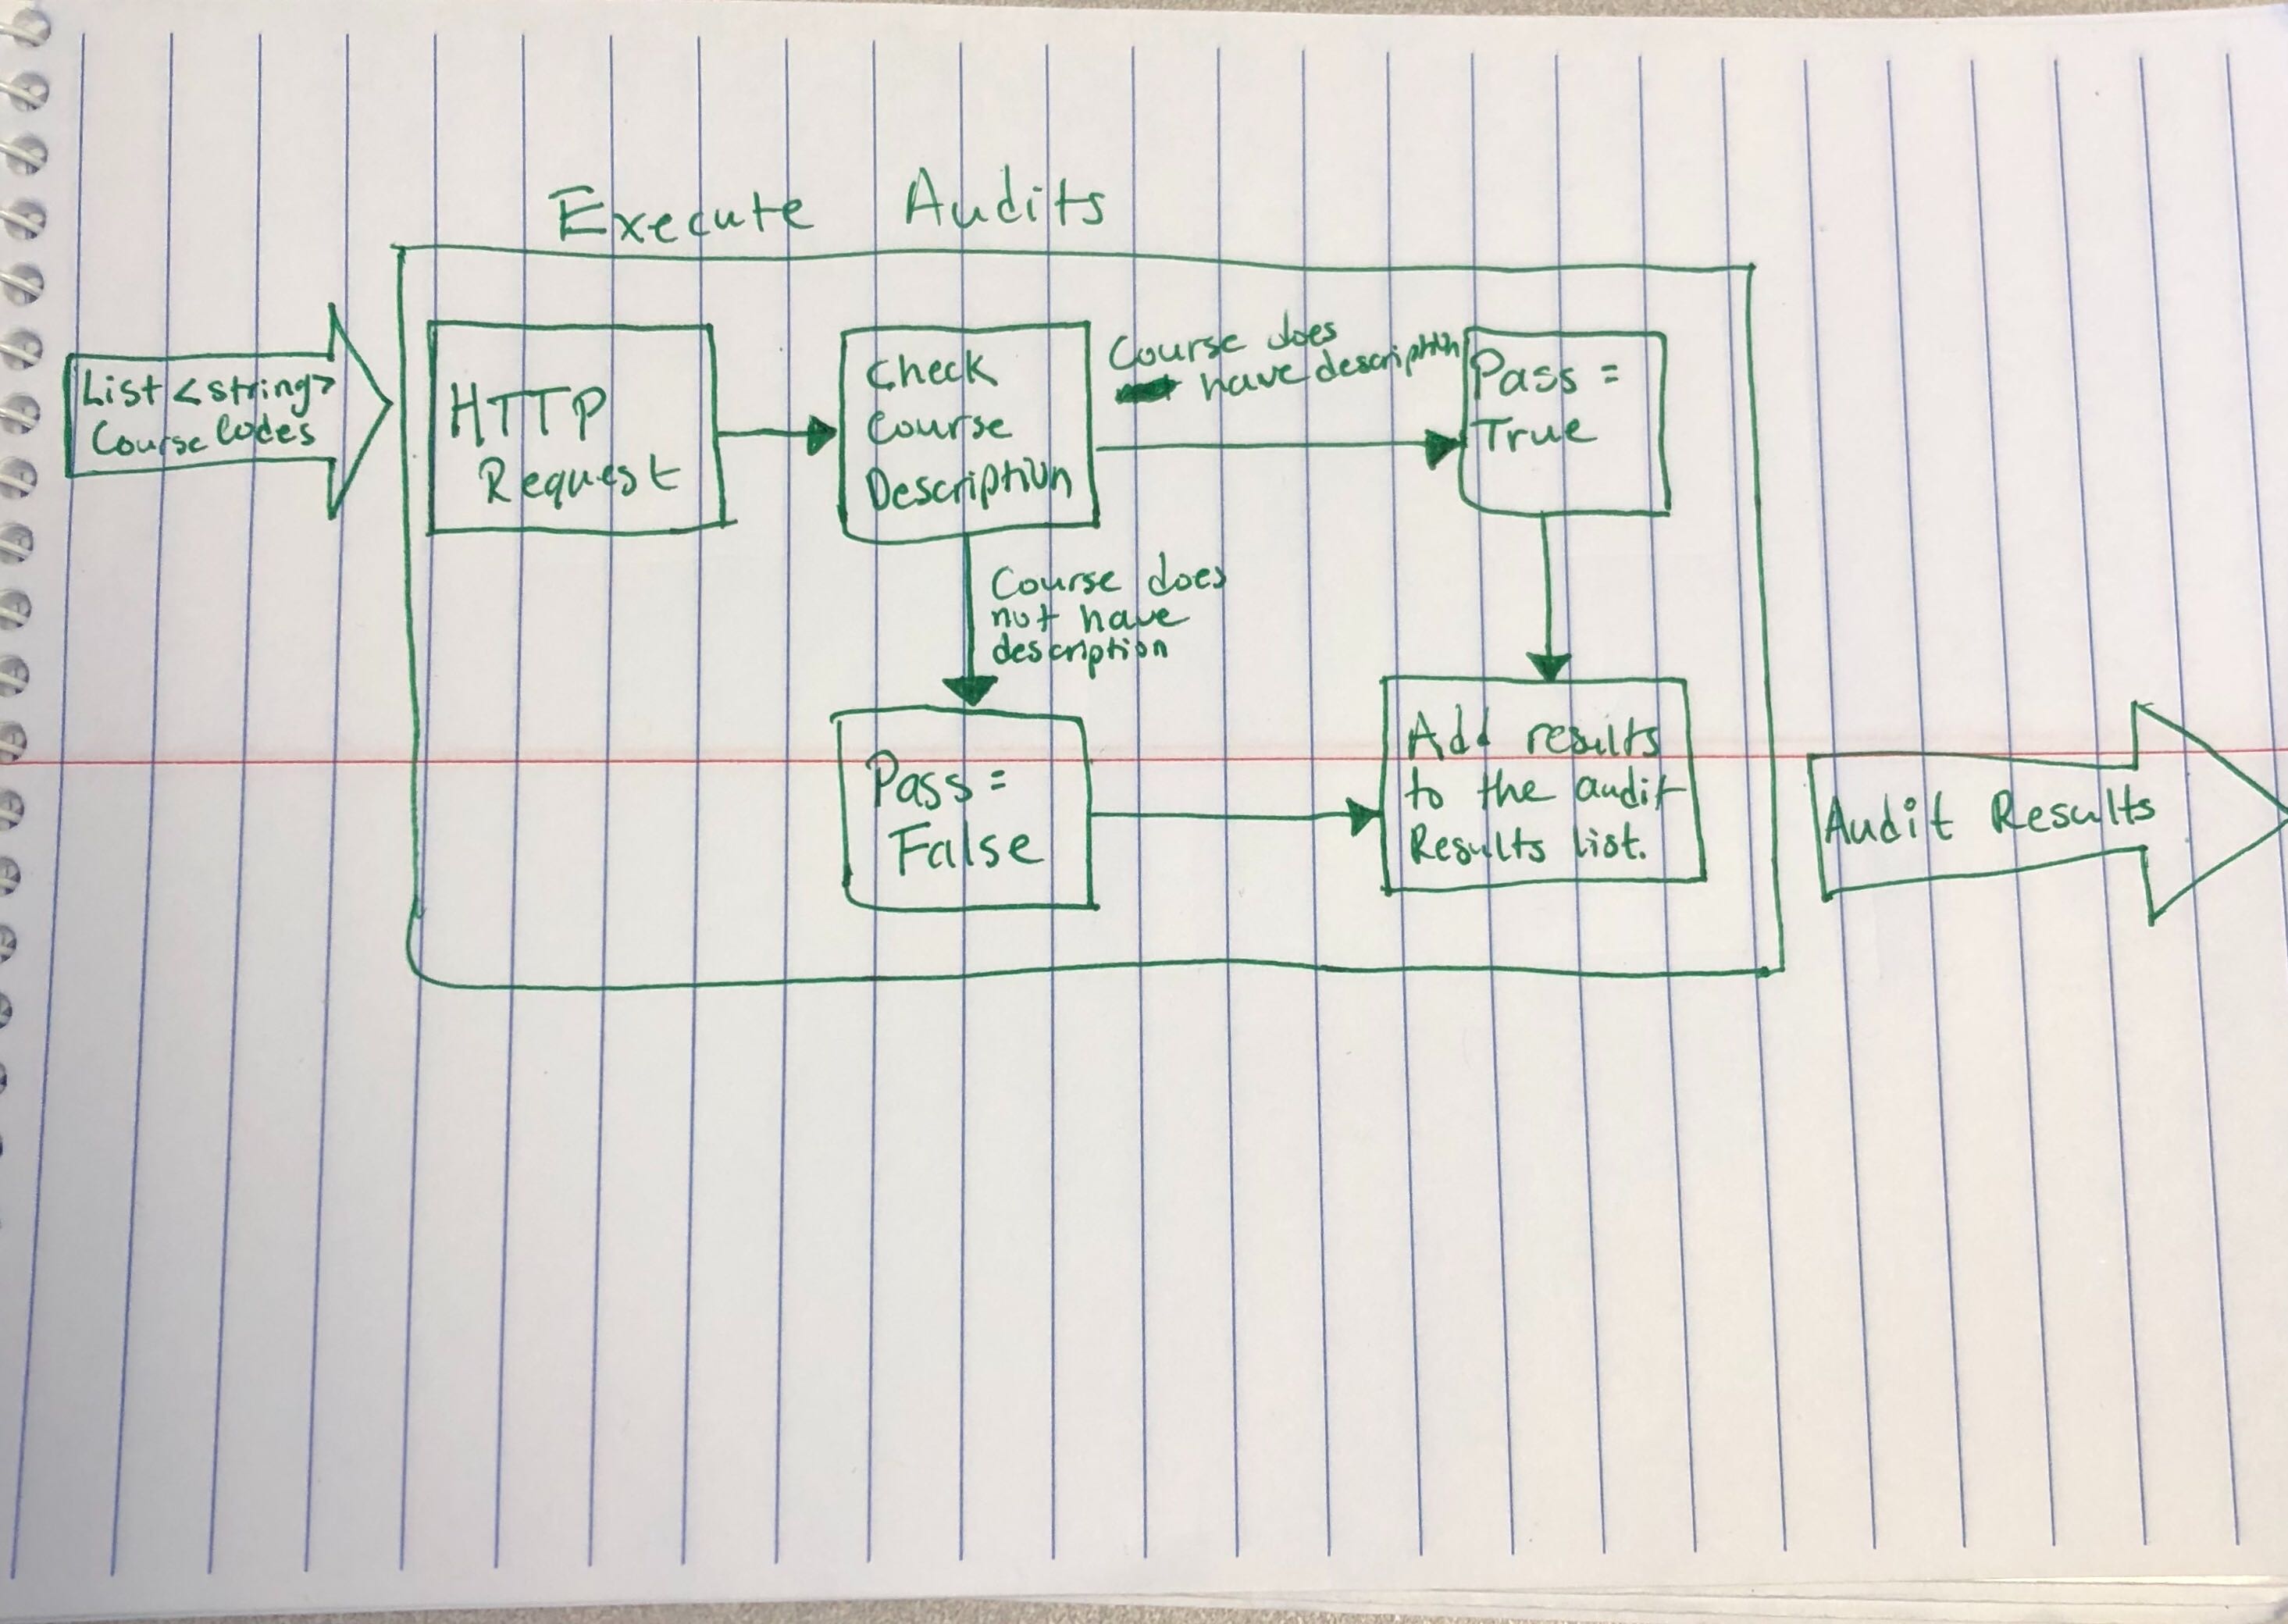 Execute Audits
List <string>
Course Codes
HTTP
Request
Check
Course
Description
Course does
have description
Pass =
True
Course does
not have
description
Pass =
False
Add results
to the audit
Results list.
Audit Results